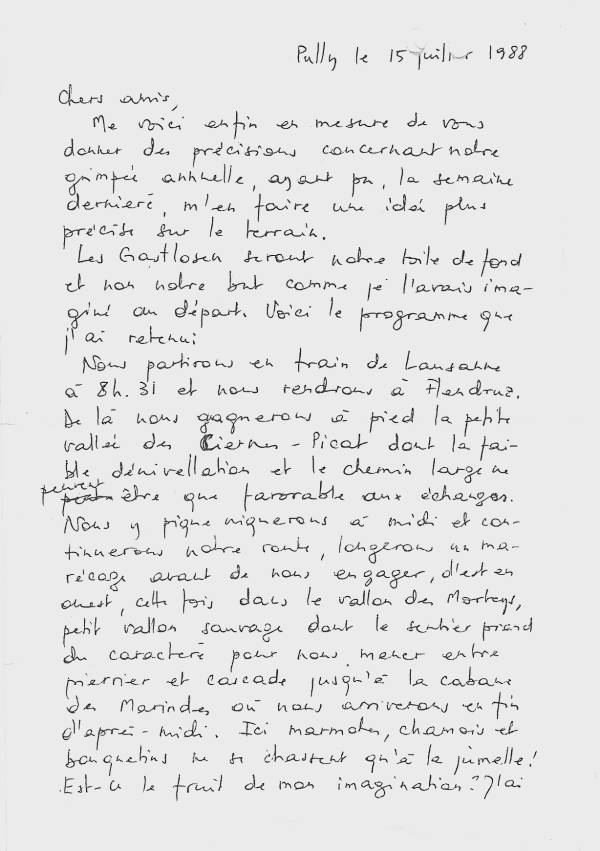 Pully le 15 juillet 1988
Chers amis,
Me voici enfin en mesure de vous
donner des précisions concernant notre
grimpée annuelle, ayant pu, la semaine
dernière, m'en faire une idée plus
précise sur le terrain.
Les Gastlosen seront notre toile de fond
et non notre but comme je l'avais ima-
giné au départ. Voici le programme que
j'ai retenu:
Nous partirons en train de Lausanne
à 8h.31 et nous rendrons à Flendruz.
De là nous gagnerons à pied la petite
vallée des Ciernes-Picat dont la fai-
ble dénivellation et le chemin large ne
peuvent être que favorable aux échanges.
Nous y pique niquerons à midi et con-
tinuerons notre route, longerons un ma-
récage avant de nous engager, d'est en
ouest, cette fois dans le vallon des Morteys,
petit vallon sauvage dont le sentier prend
du caractère pour nous mener entre
pierrier et cascade jusqu'à la cabane
des Marindes où nous arriverons en fin
d'après-midi. Ici marmottes, chamois et
bouquetins ne se chassent qu'à la jumelle!
Est-ce le fruit de mon imagination? J'ai